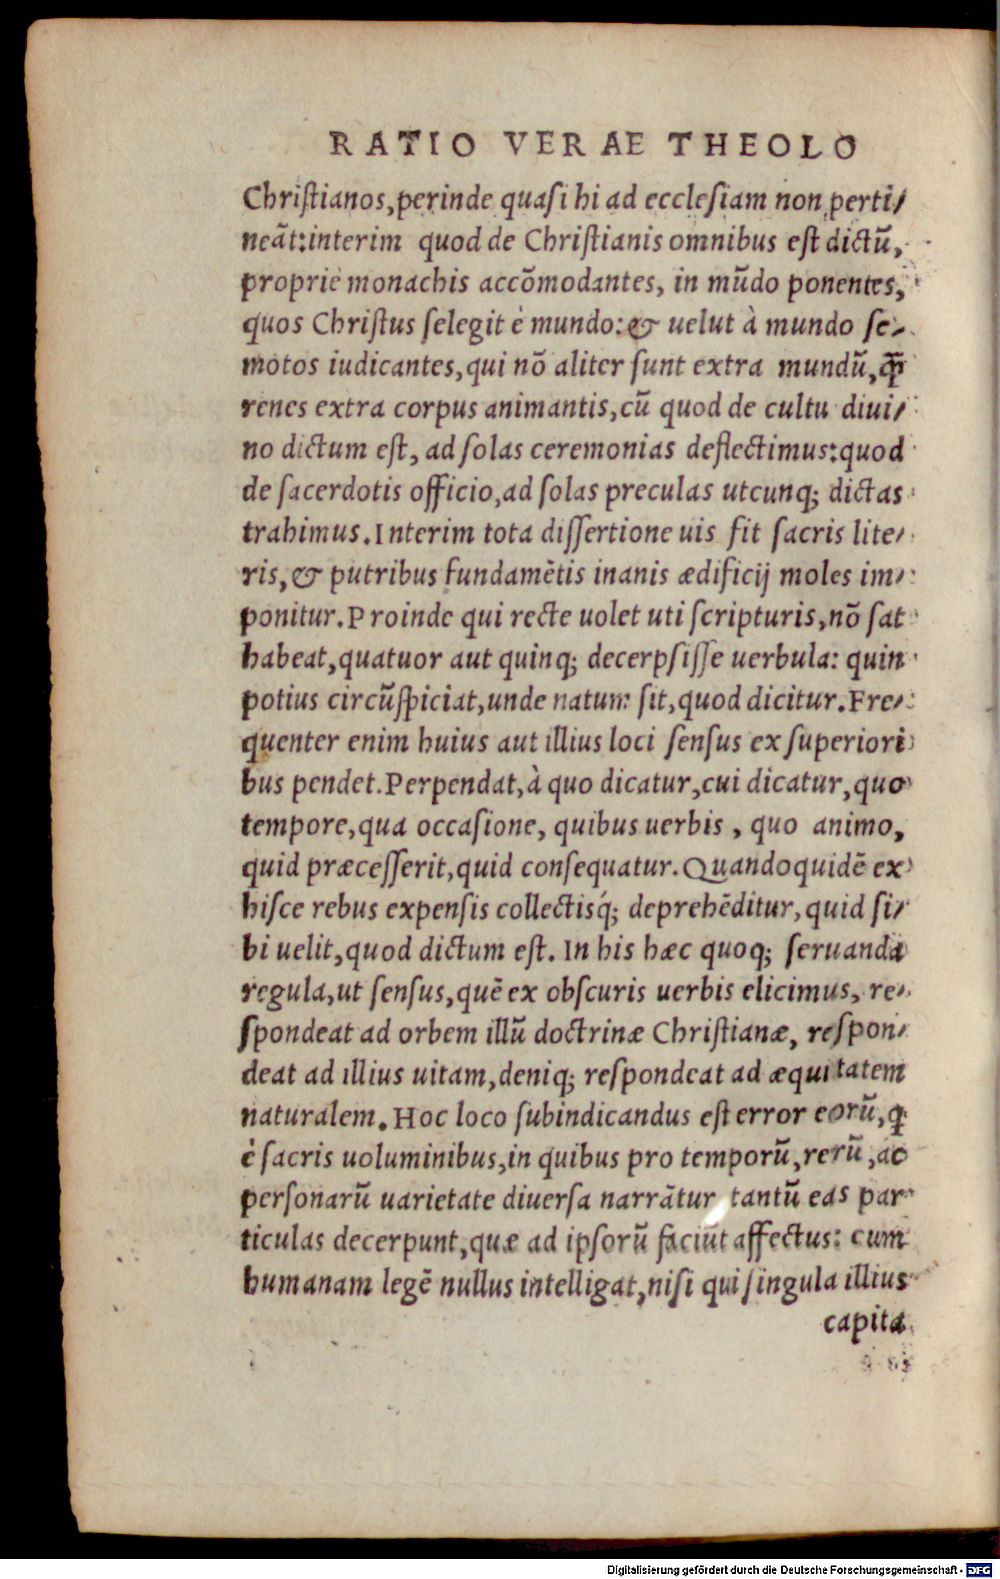 RATIO VERAE THEOLO
Chriſtianos,perinde quaſi hi ad eccleſiam non perti⸗
neãt:interim quod de Chriſtianis omnibus eſt dictũ,
proprie monachis accõmodantes, in mũdo ponentes,
quos Chriſtus ſelegit è mundo:& uelut à mundo ſe⸗
motos iudicantes,qui nõ aliter ſunt extra mundũ,q̃
renes extra corpus animantis,cũ quod de cultu diui⸗
no dictum eſt, ad ſolas ceremonias deflectimus:quod
de ſacerdotis officio,ad ſolas preculas utcunq; dictas
trahimus.Interim tota diſſertione uis fit ſacris lite⸗
ris,& putribus fundamẽtis inanis ædificij moles im⸗
ponitur.Proinde qui recte uolet uti ſcripturis,nõ ſat
habeat,quatuor aut quinq; decerpſiſſe uerbula: quin
potius circũſpiciat,unde natum ſit,quod dicitur.Fre⸗
quenter enim huius aut illius loci ſenſus ex ſuperiori
bus pendet.Perpendat,à quo dicatur,cui dicatur,quo
tempore,qua occaſione, quibus uerbis , quo animo,
quid præceſſerit,quid conſequatur.Quandoquidẽ ex
hiſce rebus expenſis collectisq́; deprehẽditur,quid ſi⸗
bi uelit,quod dictum eſt. In his hæc quoq; ſeruanda
regula,ut ſenſus,quẽ ex obſcuris uerbis elicimus, re⸗
ſpondeat ad orbem illũ doctrinæ Chriſtianæ, reſpon⸗
deat ad illius uitam,deniq; reſpondeat ad æquitatem
naturalem.Hoc loco ſubindicandus eſt error eorũ,q
è ſacris uoluminibus,in quibus pro temporũ,rerũ,ac
perſonarũ uarietate diuerſa narrãtur tantũ eas par
ticulas decerpunt,quæ ad ipſorũ faciũt affectus: cum
humanam legẽ nullus intelligat,niſi qui ſingula illius
capita
Digitalisierung gefördert durch die Deutsche Forschungsgemeinschaft - DFG